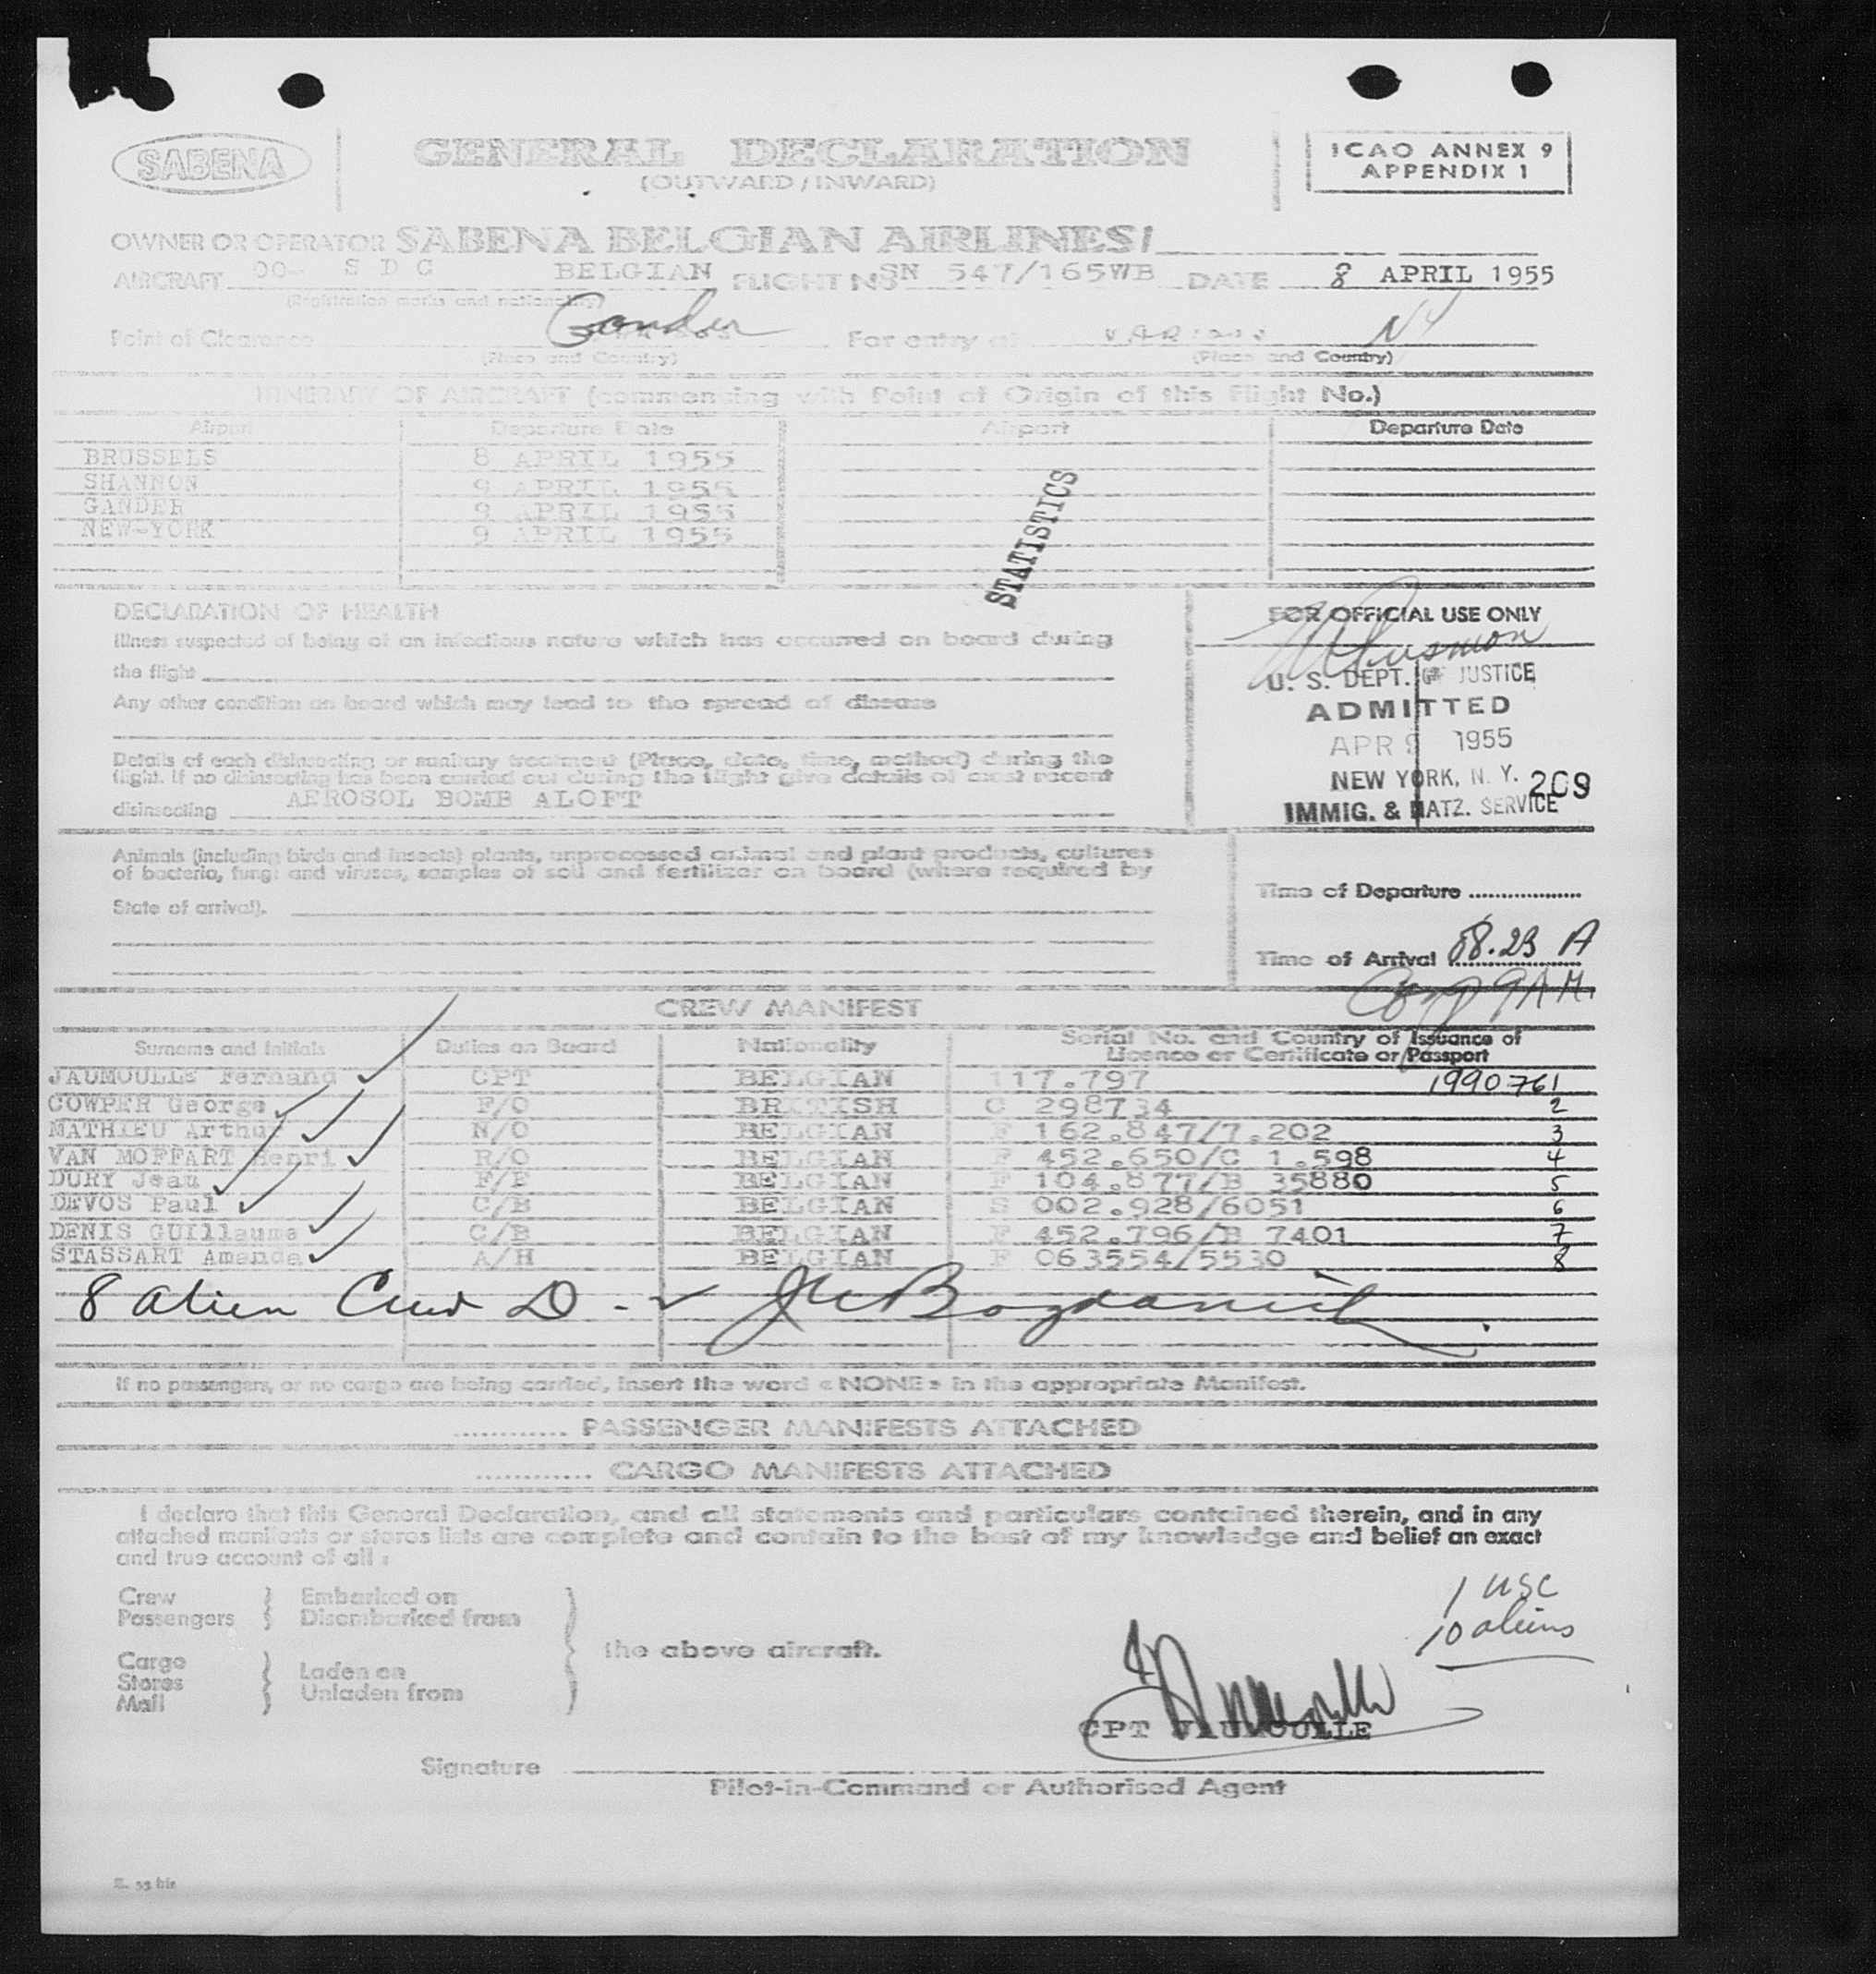 SABENA
GENERAL DECLARATION
(OUTWARD / INWARD)
ICAO ANNEX 9
APPENDIX 1
OWNER OR OPERATOR SABENA BELGIAN AIRLINES/
AIRCRAFT OO- S D C BELGIAN FLIGHT No SN 547/165WB DATE 8 APRIL 1955
(Registration marks and nationality)
Point of Clearance Gander For entry at NY
(Place and Country) (Place and Country)
ITINERARY OF AIRCRAFT (commencing with Point of Origin of this Flight No.)
Airport Departure Date Airport Departure Date
BRUSSELS 8 APRIL 1955
SHANNON 9 APRIL 1955
GANDER 9 APRIL 1955
NEW-YORK 9 APRIL 1955
STATISTICS
DECLARATION OF HEALTH
Illness suspected of being of an infectious nature which has occurred on board during
the flight
Any other condition on board which may lead to the spread of disease
Details of each disinsecting or sanitary treatment (Place, date, time, method) during the
flight. If no disinsecting has been carried out during the flight give details of most recent
disinsecting AEROSOL BOMB ALOFT
FOR OFFICIAL USE ONLY
U. S. DEPT. OF JUSTICE
ADMITTED
APR 9 1955
NEW YORK, N. Y. 209
IMMIG. & NATZ. SERVICE
Animals (including birds and insects) plants, unprocessed animal and plant products, cultures
of bacteria, fungi and viruses, samples of soil and fertilizer on board (where required by
State of arrival).
Time of Departure
Time of Arrival 08.23 A
9 AM.
CREW MANIFEST
Surname and Initials Duties on Board Nationality Serial No. and Country of Issuance of
Licence or Certificate or Passport
JAUMOULLE Fernand CPT BELGIAN 117.797 1990761
COWPER George F/O BRITISH C 298734 2
MATHIEU Arthur N/O BELGIAN F 162.847/7.202 3
VAN MOFFART Henri R/O BELGIAN F 452.650/C 1.598 4
DURY Jean F/E BELGIAN F 104.877/B 35880 5
DEVOS Paul C/B BELGIAN S 002.928/6051 6
DENIS GUillaume C/B BELGIAN F 452.796/B 7401 7
STASSART Amanda A/H BELGIAN F 063554/5530 8
8 alien Crew D -
If no passengers, or no cargo are being carried, insert the word « NONE » in the appropriate Manifest.
............ PASSENGER MANIFESTS ATTACHED
............ CARGO MANIFESTS ATTACHED
I declare that this General Declaration, and all statements and particulars contained therein, and in any
attached manifests or stores lists are complete and contain to the best of my knowledge and belief an exact
and true account of all :
Crew Embarked on
Passengers Disembarked from
the above aircraft.
Cargo
Stores Laden on
Mail Unladen from
1 USC
10 aliens
CPT JAUMOULLE
Signature
Pilot-in-Command or Authorised Agent